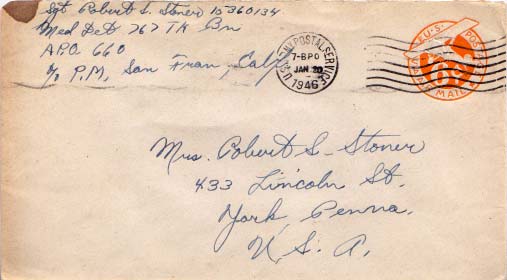 Sgt Robert S. Stoner 15360134
Med Det 767 TK Bn
APO 660
c/o P.M., San Fran, Calif
U.S. ARMY POSTAL SERVICE
7-BPO
JAN 20
1946
U.S. POSTAGE
AIR MAIL
Mrs. Robert S. Stoner
433 Lincoln St.
York, Penna.
U.S.A.